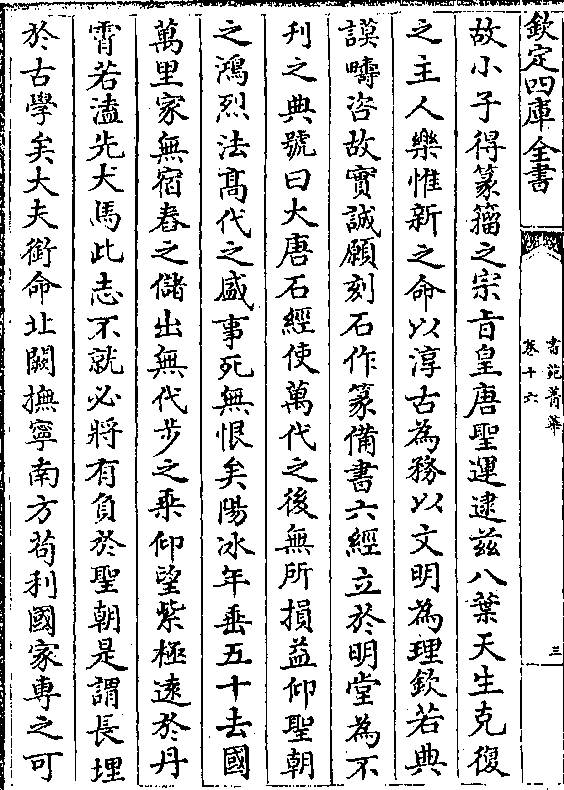 欽定四庫全書
書苑菁華
卷十六
三
故小子得篆籀之宗旨皇唐聖運逮兹八葉天生克復
之主人樂惟新之命以淳古為務以文明為理欽若典
謨疇咨故實誠願刻石作篆備書六經立於明堂為不
刋之典號曰大唐石經使萬代之後無所損益仰聖朝
之鴻烈法髙代之盛事死無恨矣陽冰年垂五十去國
萬里家無宿舂之儲出無代步之乗仰望紫極逺於丹
霄若溘先犬馬此志不就必將有負於聖朝是謂長埋
於古學矣大夫銜命北闕撫寧南方苟利國家専之可